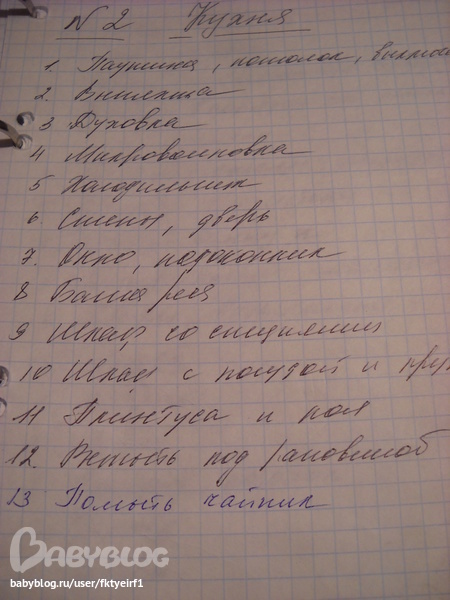 N 2 Кухня
1. Паутина, потолок,
2. Вытяжка
3 Духовка
4 Микроволновка
5 Холодильник
6 Стены, дверь
7. Окно, подоконник
8
9 Шкаф со специями
10 Шкаф с посудой и
11 Плинтуса и пол
12. под раковиной
13 Помыть чайник
BABYBLOG
babyblog.ru/user/fktyeirf1